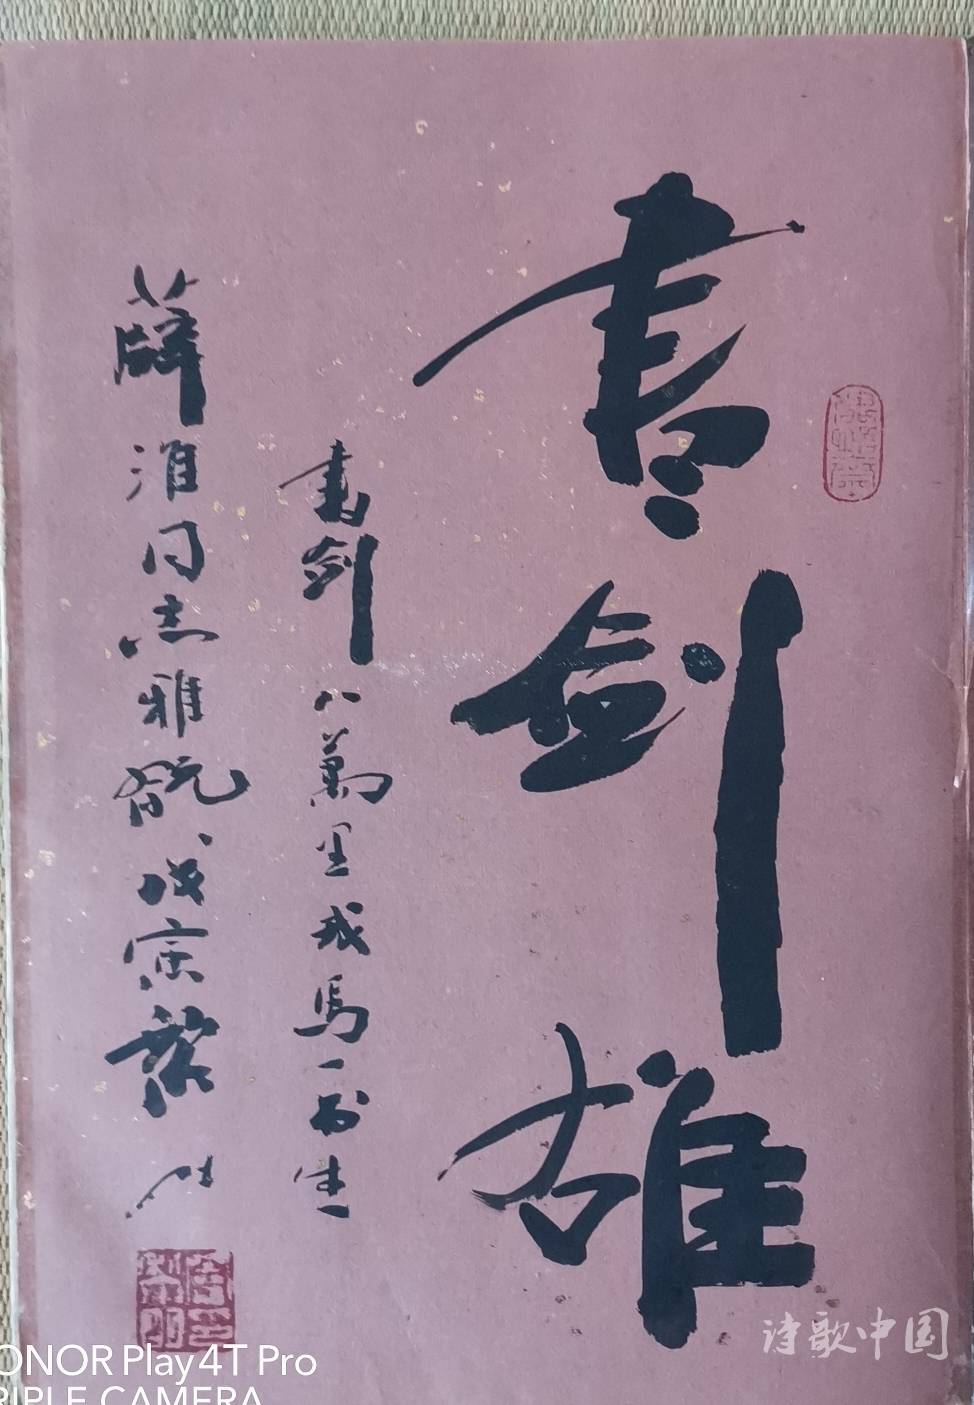 书剑雄
書剑八萬里戎馬一书生
薛淮同志雅玩戊寅黎
诗歌中国
ONOR Play4T Pro
RIPLE CAMERA